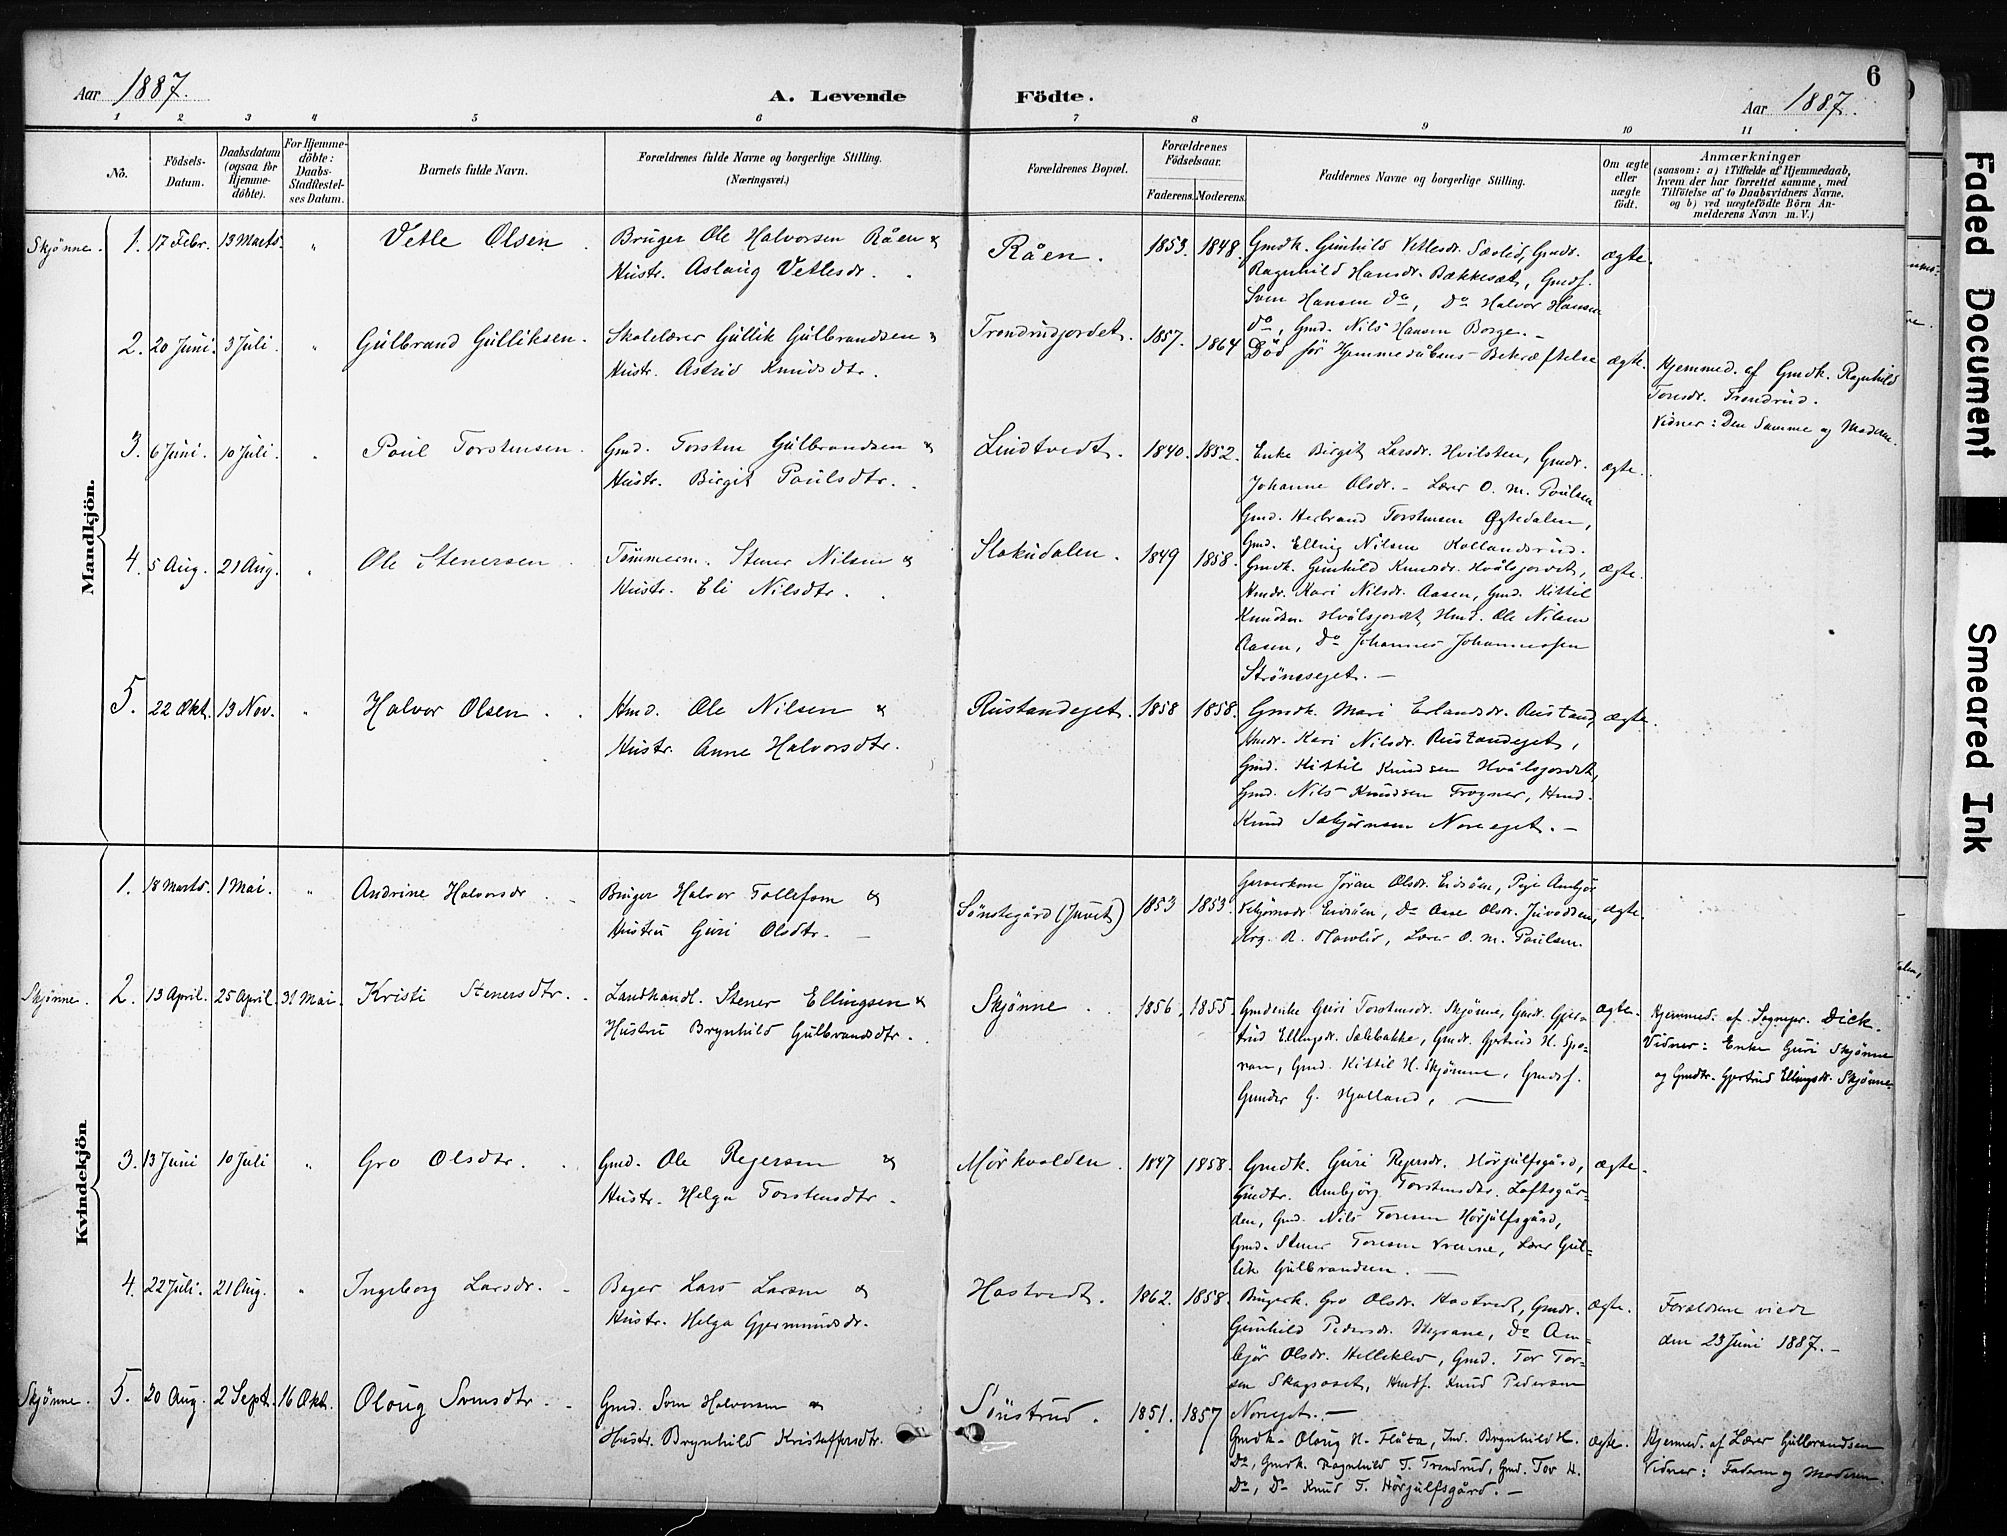 6
Aar 1887.
A. Levende Födte.
Aar 1887.
1 2 3 4 5 6 7 8 9 10 11
No.
Födsels-Datum.
Daabsdatum (ogsaa for Hjemme-döbte).
For Hjemme-döbte: Daabs-Stadfestel-ses Datum.
Barnets fulde Navn.
Forældrenes fulde Navne og borgerlige Stilling.
(Næringsvei.)
Forældrenes Bopæl.
Forældrenes Födselsaar.
Faderens. Moderens.
Faddernes Navne og borgerlige Stilling.
Om ægte eller uægte födt.
Anmærkninger
(saasom: a) i Tilfælde af Hjemmedaab,
hvem der har forrettet samme, med
Tilföielse af to Daabsvidners Navne.
og b) ved uægtefödte Börn An-
melderens Navn m. V.)
Mandkjön.
Skjønne. 1. 17 Febr. 13 Marts. " Vetle Olsen. Bruger Ole Halvorsen Råen &
Hustr. Aslaug Vetlesdr.
Råen. 1853. 1848. Gmdk. Gunhild Vetlesdr. Sælid, Gmdr.
Ragnhild Hansdr. Bækkesæt, Gmdf.
Sven Hansen Do, Do Halvor Hansen
Do, Gmd. Nils Hansen Borge. –
ægte.
2. 20 Juni. 3 Juli. " Gulbrand Gulliksen. Skolelærer Gullik Gulbrandsen &
Hustr. Astrid Knudsdtr.
Trondrudjordet. 1857. 1864 Død før Hjemmedåbens Bekræftelse ægte.
Hjemmed. af Gmdk. Ragnhild
Toresdr. Trondrud.
Vidner: Den Samme og Moderen.
3. 6 Juni. 10 Juli. " Poul Torstensen. Gmd. Torsten Gulbrandsen &
Hustr. Birgit Poulsdtr.
Lindtvedt. 1840. 1852. Enke Birgit Larsdr. Hvilsten, Gmdr.
Johanne Olsdr. – Lærer O. M. Poulsen
Gmd. Herbrand Torstensen Øgtedalen,
Gmd. Elling Nilsen Kollandsrud.
ægte.
4. 5 Aug. 21 Aug. " Ole Stenersen Tømmerm. Stener Nilsen &
Hustr. Eli Nilsdtr.
Slokudalen. 1849 1858. Gmdk. Gunhild Knudsdr. Hvålsjordet,
Hmdr. Kari Nilsdr. Aasen, Gmd. Kittil
Knudsen Hvålsjordet, Hmd. Ole Nilsen
Aasen, Do Johannes Johannessen
Strömseget. –
ægte.
5. 22 Okt. 13 Nov. " Halvor Olsen. Hmd. Ole Nilsen &
Hustr. Anne Halvorsdtr.
Rustandeget. 1858 1858. Gmdk. Mari Erlandsdr. Rustand,
Hmdr. Kari Nilsdr. Rustandeget,
Gmd. Kittil Knudsen Hvålsjordet,
Gmd. Nils Knudsen Frogner, Hmd.
Knud Sebjørnsen Noreeget. –
ægte.
Kvindekjön
1. 18 Marts. 1 Mai. " Andrine Halvorsdr Bruger Halvor Tollefsen &
Hustru Guri Olsdtr. –
Sønstegård (Juvet) 1853 1853. Garverkone Jøran Olsdr. Eidsåen, Pige Ambjør
Vebjørnsdr. Eidsåen, Do Aase Olsdr.
Krg. R. Lærer O. M. Poulsen.
ægte.
Skjønne. 2. 13 April. 25 April. 31 Mai. Kristi Stenersdtr. Landhandl. Stener Ellingsen &
Hustru Brynhild Gulbrandsdtr.
Skjønne. 1856. 1855. Gmdenke Guri Torstensdr. Skjønne, Gmdr. Gjer-
trud Ellingsdr. Sælebakke, Gmdr. Gjertrud H. Spo-
ran, Gmd. Kittil H. Skjønne, Gmdsf.
Gunder G. Hjalland, –
ægte. Hjemmed. af Sognepr. Dick.
Vidner: Enke Guri Skjønne
og Gmdtr. Gjertrud Ellingsdr. Skjønne
3. 13 Juni 10 Juli " Gro Olsdtr. Gmd. Ole Reiersen &
Hustr. Helga Torstensdtr.
Mørkvolden. 1847 1858. Gmdk. Guri Reiersdr. Hörjulfsgård,
Gmdtr. Ambjörg Torstensdtr. Loftsgår-
den, Gmd. Nils Toresen Hörjulfsgård,
Gmd. Stener Toresen Vreine, Lærer Gul-
lik Gulbrandsen. –
ægte.
4. 22 Juli. 21 Aug. " Ingeborg Larsdr. Bager Lars Larsen &
Hustr. Helga Gjermundsdr.
Hastvedt. 1862. 1858. Brugerk. Gro Olsdr. Hastvedt, Gmdr.
Gunhild Pedersdr. Myrane, Do Am-
bjør Olsdr. Helleklev, Gmd. Tor Tor-
sen Skagsoset, Hmdf. Knud Pedersen
Noreeget. –
ægte. Forældrene viede
den 23 Juni 1887. –
Skjønne. 5. 20 Aug. 2 Sept. 16 Okt. Oloug Svensdtr. Gmd. Sven Halvorsen &
Hustr. Brynhild Kristoffersdtr.
Sönstrud. 1851. 1857 Gmdk. Oloug H. Flåta, Ind. Brynhild H.
Do, Gmdk. Ragnhild T. Trondrud, Gmd. Tor H.
Do, Do Knud T. Hörjulfsgård. –
ægte. Hjemmed. af Lærer Gulbrandsen
Vidner: Faderen og Moderen.
Faded Document
Smeared Ink